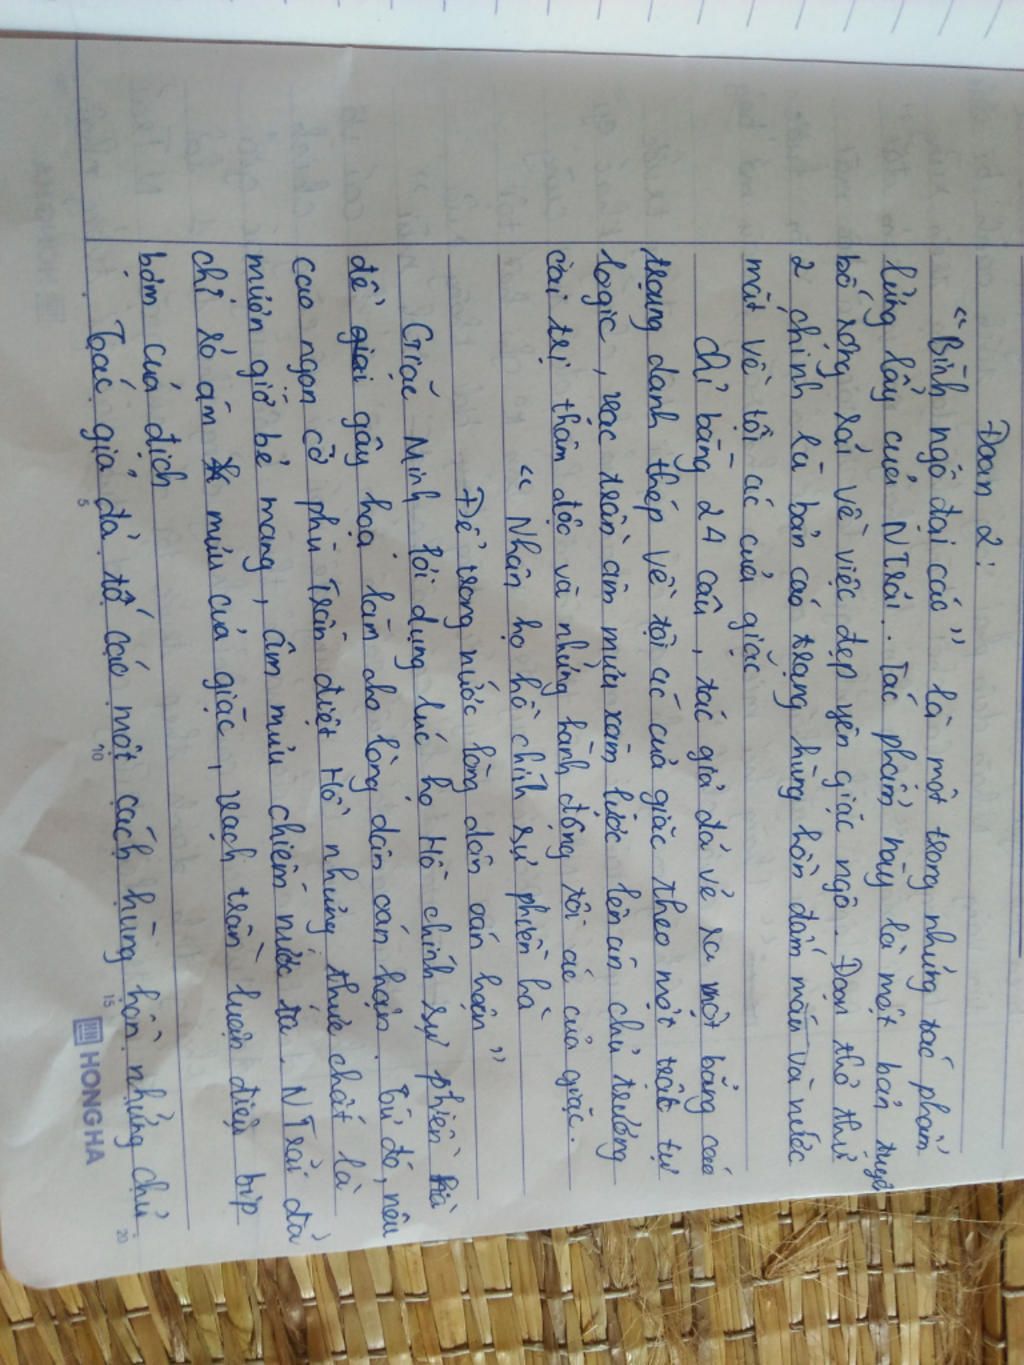 Đoạn 2:
"Bình ngô đại cáo" là một trong những tác phẩm
lừng lẫy của NTrãi. Tác phẩm này là một bản tuyên
bố rộng rãi về việc dẹp yên giặc ngô. Đoạn thơ thứ
2 chính là bản cáo trạng hùng hồn đẫm máu và nước
mắt về tội ác của giặc
Chỉ bằng 24 câu, tác giả đã vẽ ra một bảng cáo
trạng danh thép về tội ác của giặc theo một trật tự
logic, vạc trần âm mưu xâm lược lên án chủ trương
cai trị thâm độc và những hành động tội ác của giặc.
"Nhân họ hồ chính sự phiền hà
Để trong nước lòng dân oán hận"
Giặc Minh lợi dụng lúc họ Hồ chính sự phiền hà
để gây họa làm cho lòng dân oán hận. Từ đó, nêu
cao ngọn cờ phù Trần diệt Hồ nhưng thực chất là
mượn gió bẻ mang, âm mưu chiếm nước ta. NTrãi đã
chỉ rõ âm mưu của giặc, vạch trần luận điệu bịp
bợm của địch
Tác giả đã tố cáo một cách hùng hồn những chủ
5 10 15 20
HONG HA